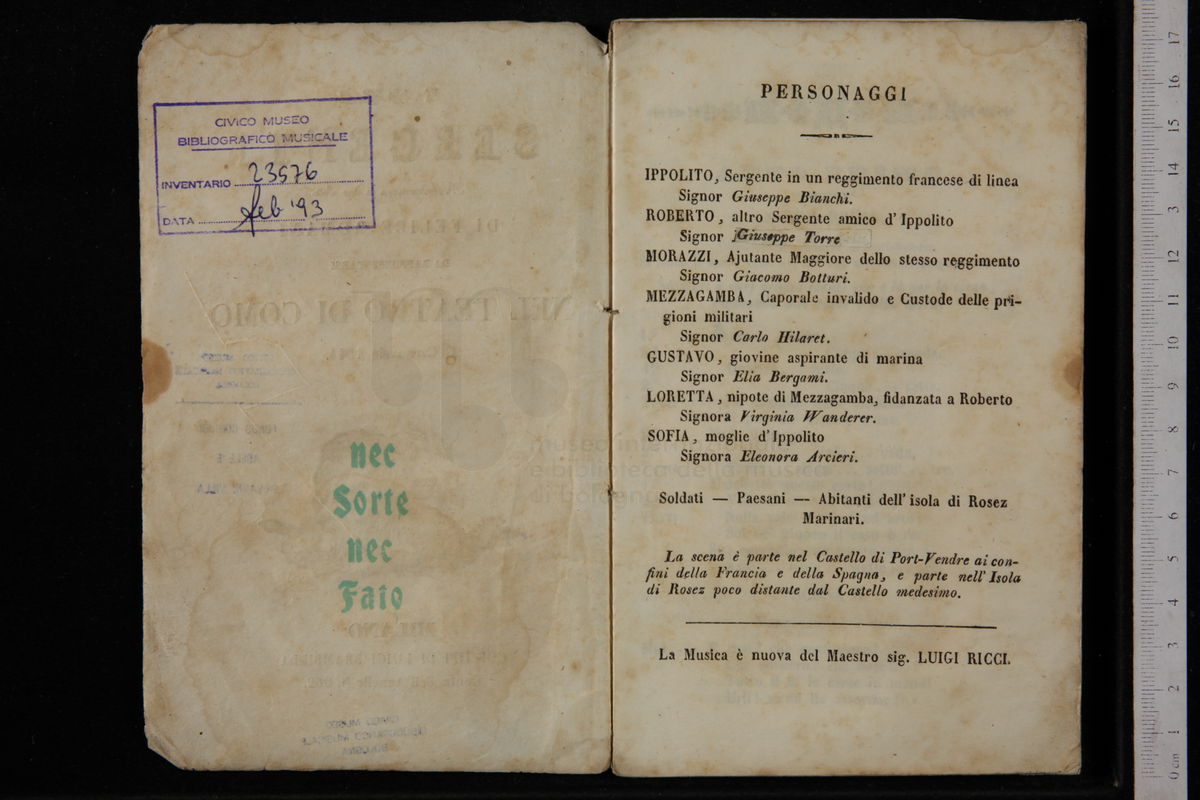 CIVICO MUSEO
BIBLIOGRAFICO MUSICALE
INVENTARIO 23576
DATA feb '93
nec
Sorte
nec
Fato
PERSONAGGI
IPPOLITO, Sergente in un reggimento francese di linea
Signor Giuseppe Bianchi.
ROBERTO, altro Sergente amico d' Ippolito
Signor Giuseppe Torre
MORAZZI, Ajutante Maggiore dello stesso reggimento
Signor Giacomo Botturi.
MEZZAGAMBA, Caporale invalido e Custode delle pri-
gioni militari
Signor Carlo Hilaret.
GUSTAVO, giovine aspirante di marina
Signor Elia Bergami.
LORETTA, nipote di Mezzagamba, fidanzata a Roberto
Signora Virginia Wanderer.
SOFIA, moglie d' Ippolito
Signora Eleonora Arcieri.
Soldati — Paesani — Abitanti dell' isola di Rosez
Marinari.
La scena è parte nel Castello di Port-Vendre ai con-
fini della Francia e della Spagna, e parte nell' Isola
di Rosez poco distante dal Castello medesimo.
La Musica è nuova del Maestro sig. LUIGI RICCI.
0 cm 1 2 3 4 5 6 7 8 9 10 11 12 13 14 15 16 17